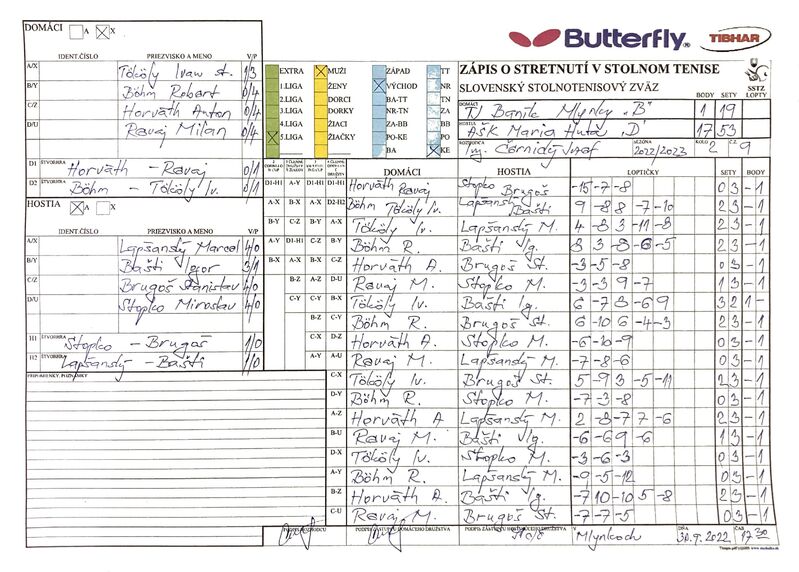 Butterfly® TIBHAR
DOMÁCI A X
IDENT.ČÍSLO PRIEZVISKO A MENO V/P
A/X Tököly Ivan st. 1/3
B/Y Böhm Robert 0/4
C/Z Horváth Anton 0/4
D/U Ravaj Milan 0/4
D1 ŠTVORHRA Horváth - Ravaj 0/1
D2 ŠTVORHRA Böhm - Tököly Iv. 0/1
HOSTIA A X
IDENT.ČÍSLO PRIEZVISKO A MENO V/P
A/X Lapšanský Marcel 4/0
B/Y Bašti Igor 3/1
C/Z Brugoš Stanislav 4/0
D/U Stopko Miroslav 4/0
H1 ŠTVORHRA Stopko - Brugoš 1/0
H2 ŠTVORHRA Lapšanský - Bašti 1/0
PRIPOMIENKY, POZNÁMKY
EXTRA MUŽI ZÁPAD TT
1.LIGA ŽENY VÝCHOD NR
2.LIGA DORCI BA-TT TN
3.LIGA DORKY NR-TN ZA
4.LIGA ŽIACI ZA-BB BB
5.LIGA ŽIAČKY PO-KE PO
BA KE
ZÁPIS O STRETNUTÍ V STOLNOM TENISE
SLOVENSKÝ STOLNOTENISOVÝ ZVÄZ
SSTZ
BODY SETY LOPTY
DOMÁCI TJ Baník Mlynky "B" 1 19
HOSTIA AŠK Maria Huta "D" 17 53
ROZHODCA Ing. Černický Jozef SEZÓNA 2022/2023 KOLO 2 Č 9
DOMÁCI HOSTIA LOPTIČKY SETY BODY
D1-H1 A-Y D1-H1 D1-H1 Horváth Ravaj Stopko Brugoš -15 -7 -8 0 3 -1
A-X B-X A-X D2-H2 Böhm Tököly Iv. Lapšanský Bašti 9 -8 8 -7 -10 2 3 -1
B-Y C-Z B-Y A-X Tököly Iv. Lapšanský M. 4 -8 3 -11 -8 2 3 -1
A-Y D1-H1 C-Z B-Y Böhm R. Bašti Ig. 8 3 -8 -6 -5 2 3 -1
B-X A-X B-X C-Z Horváth A. Brugoš St. -3 -5 -8 0 3 -1
B-Z A-Z D-U Ravaj M. Stopko M. -3 -3 9 -7 1 3 -1
C-Y B-X Tököly Iv. Bašti Ig. 6 -7 8 -6 9 3 2 1 -
B-Z C-Y Böhm R. Brugoš St. 6 -10 6 -4 -3 2 3 -1
C-X D-Z Horváth A. Stopko M. -6 -10 -9 0 3 -1
A-Y A-U Ravaj M. Lapšanský M. -7 -8 -6 0 3 -1
C-X Tököly Iv. Brugoš St. 5 -9 3 -5 -11 2 3 -1
D-Y Böhm R. Stopko M. -7 -3 -8 0 3 -1
A-Z Horváth A Lapšanský M. 2 -8 -7 7 -6 2 3 -1
B-U Ravaj M. Bašti Ig. -6 -6 9 -6 1 3 -1
D-X Tököly Iv. Stopko M. -3 -6 -3 0 3 -1
A-Y Böhm R. Lapšanský M. -9 -5 -12 0 3 -1
B-Z Horváth A. Bašti Ig -7 10 -10 5 -8 2 3 -1
C-U Ravaj M. Brugoš St. -7 -7 -5 0 3 -1
PODPIS ROZHODCU PODPIS ZÁSTUPCU DOMÁCEHO DRUŽSTVA PODPIS ZÁSTUPCU HOSŤUJÚCEHO DRUŽSTVA V Mlynkoch DŇA 30.9.2022 ČAS 17 30